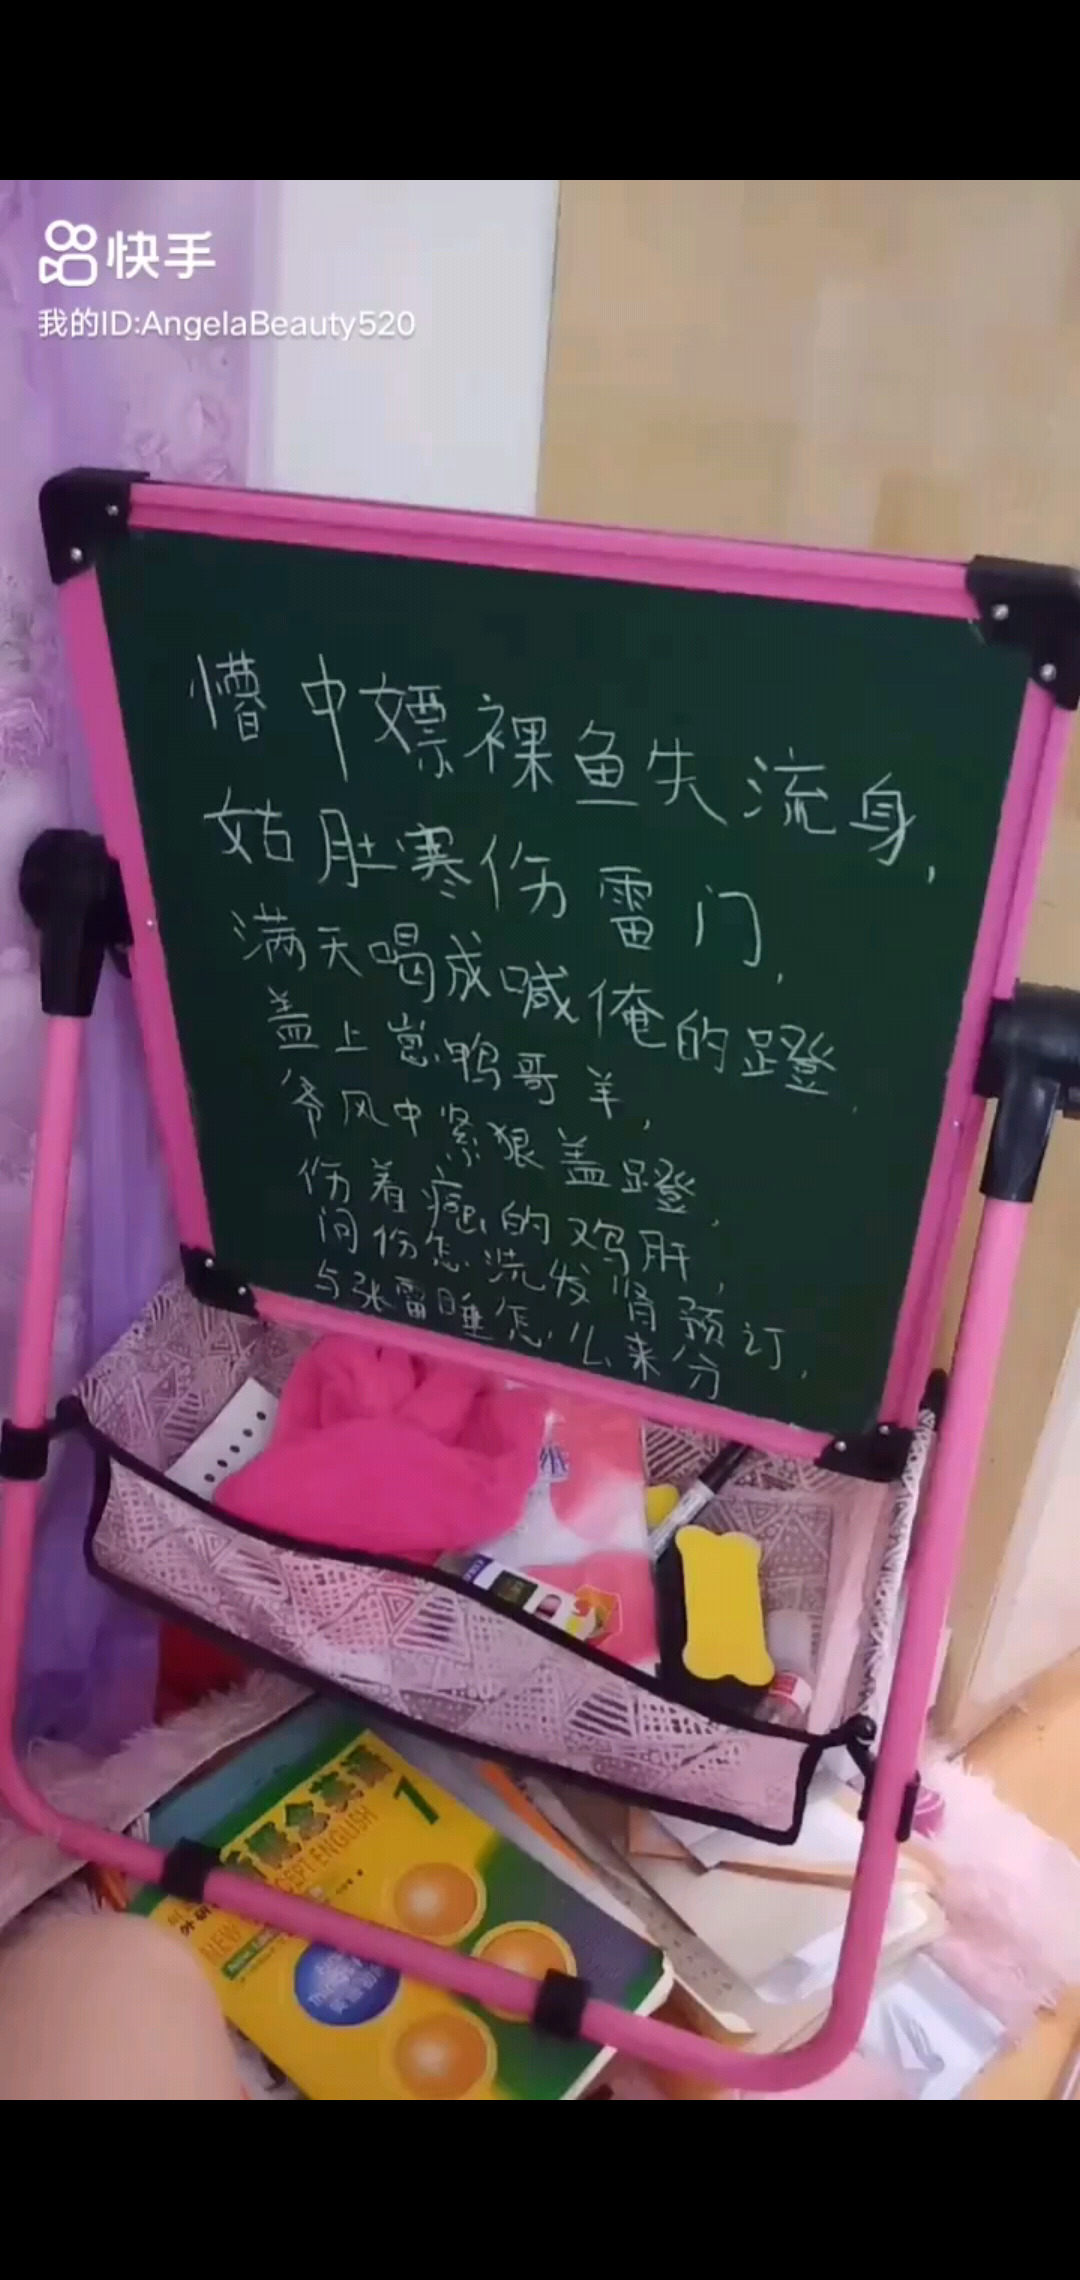 快手
我的ID:AngelaBeauty520
懵中嫖裸鱼失流身,
姑肚寒伤雷门,
满天喝成喊俺的蹬,
盖上崽鸭哥羊,
爷风中紧狠盖蹬,
伤着癔的鸡肝,
问伤怎洗发肾预订,
与张雷睡怎么来分
1
ENGLISH
NEW